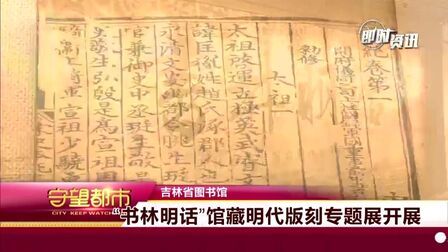 即时资讯
紀卷第一
勅修
太祖一
太祖啟運立極英武睿文
諱匡胤姓趙氏涿郡人
永清文安幽都令
官兼御史中丞珽生
生弘殷是為宣祖
上將軍宣祖少驍
守望都市
CITY KEEP WATCH
吉林省图书馆
“书林明话”馆藏明代版刻专题展开展